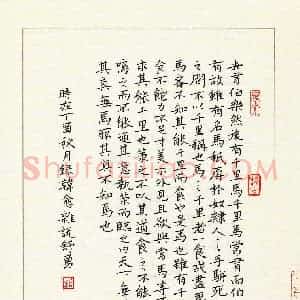 世有伯樂然後有千里馬千里馬常有而伯
有故雖有名馬祗辱於奴隸人之手駢死
之間不以千里稱也馬之千里者一食或盡粟
馬者不知其能千里而食也是馬也雖有千
食不飽力不足才美不外見且欲與常馬等
求其能千里也策之不以其道食之不能
鳴之而不能通其意執策而臨之曰天下無
其真無馬邪其真不知馬也
時在丁酉秋月錄韓愈雜說舒勇